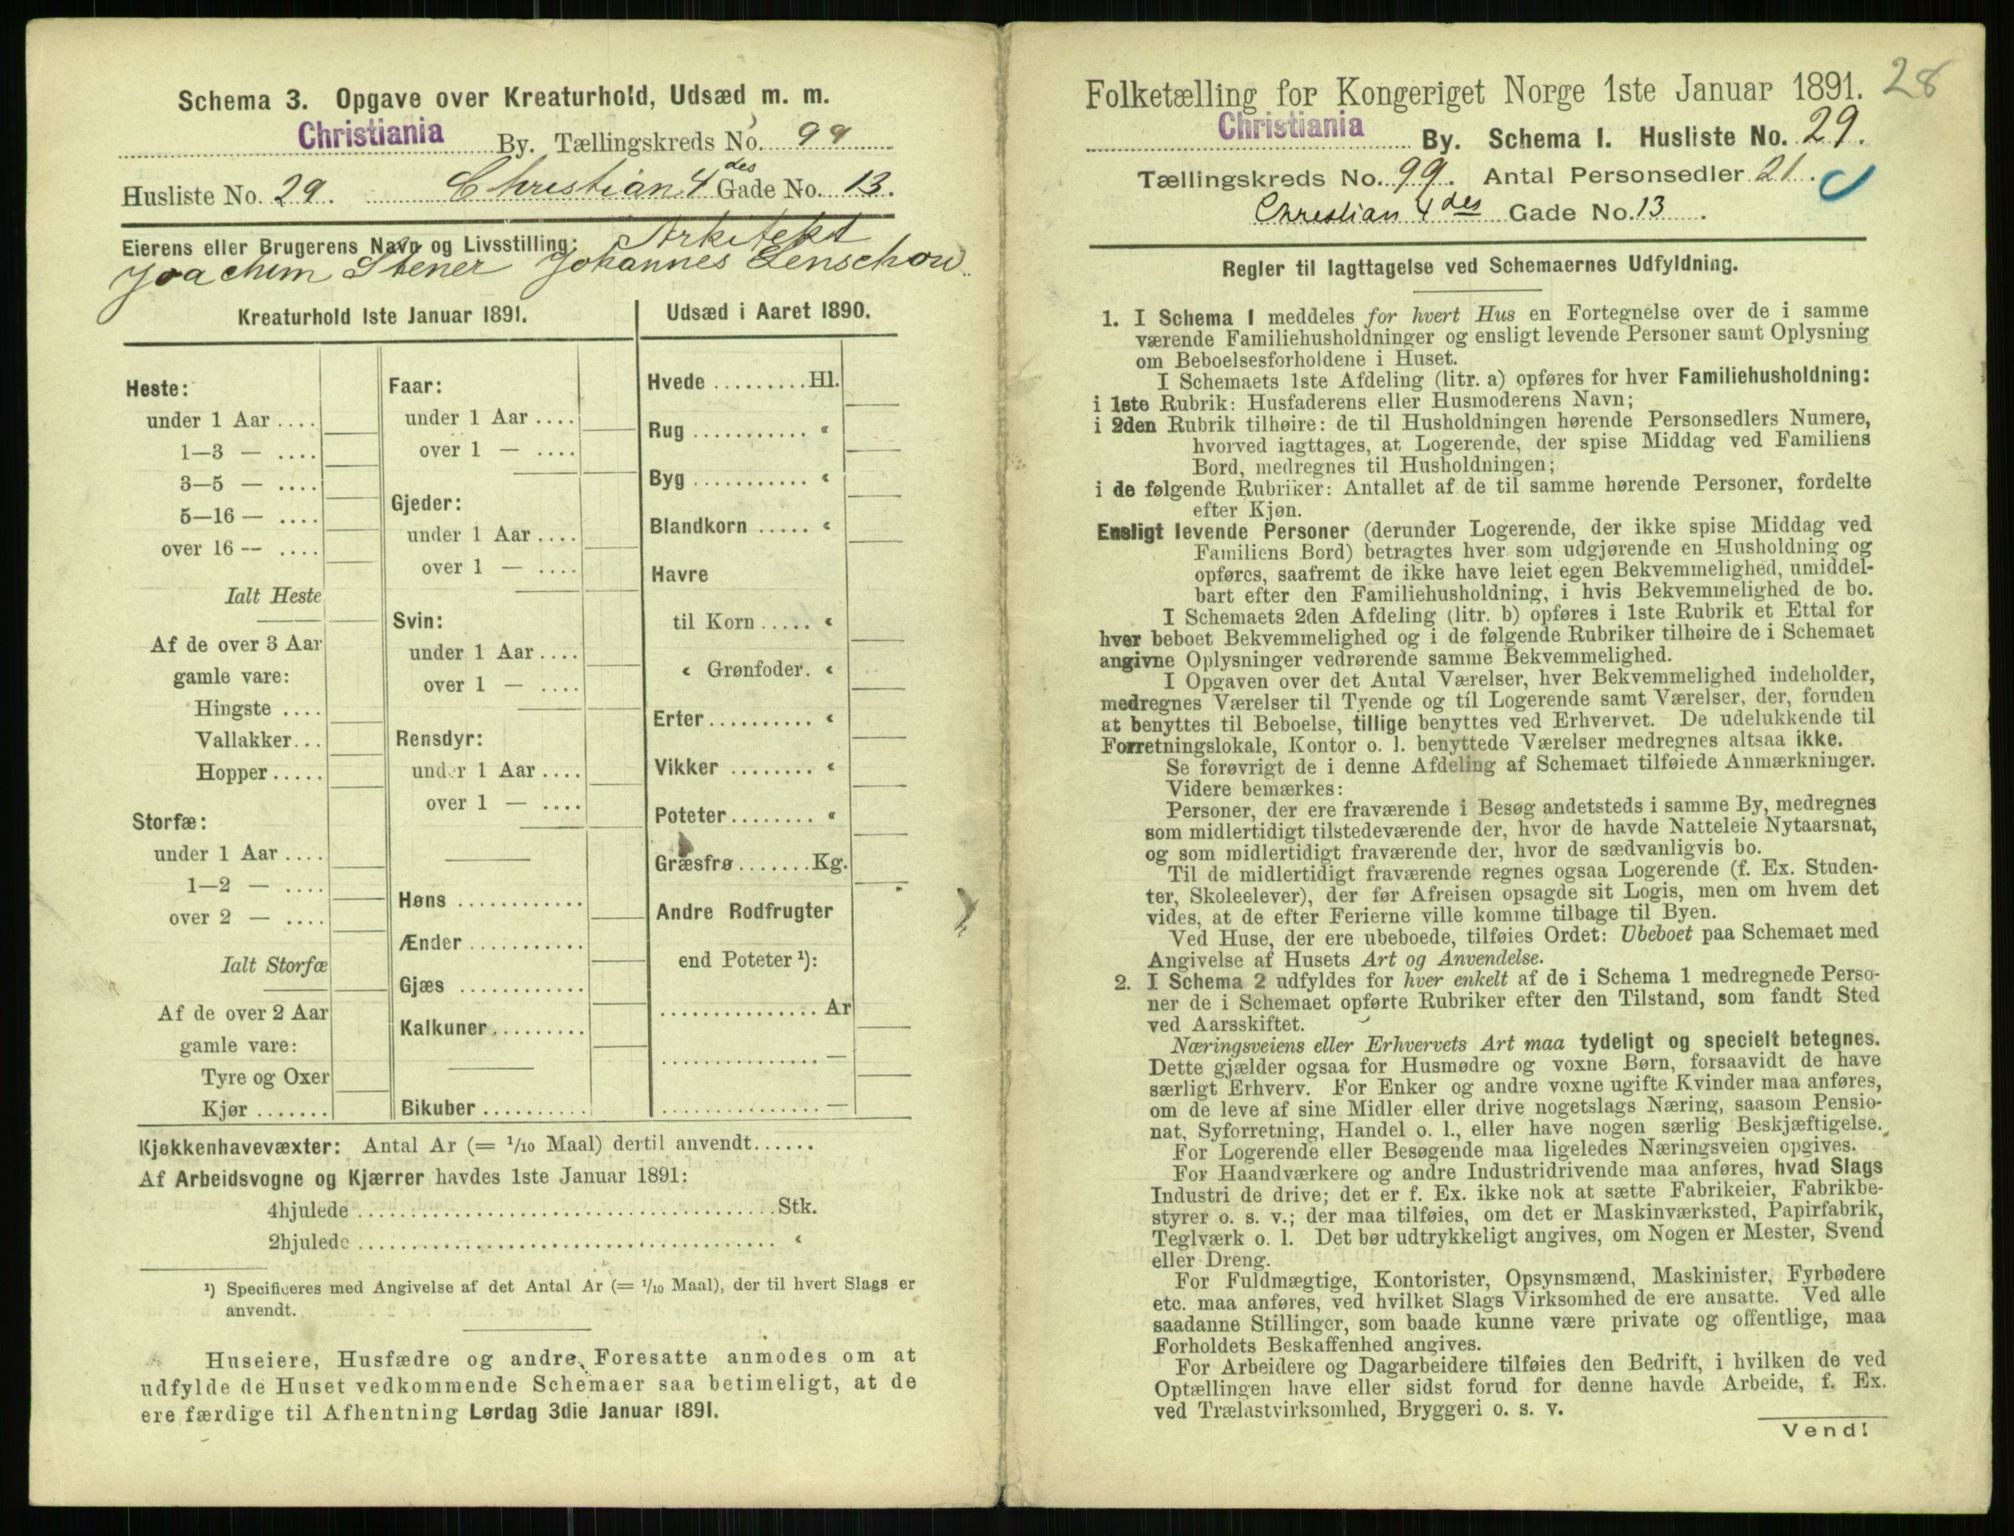 Schema 3. Opgave over Kreaturhold, Udsæd m. m.
Christiania By. Tællingskreds No. 99
Husliste No. 29. Christian 4 des Gade No. 13.
Eierens eller Brugerens Navn og Livsstilling: Arkitekt
Joachim Stener Johannes Lenschow.
Kreaturhold 1ste Januar 1891.
Heste:
under 1 Aar ....
1—3 — ....
3—5 — ....
5—16 — ....
over 16 -- ....
Ialt Heste
Af de over 3 Aar
gamle vare:
Hingste ....
Vallakker...
Hopper.....
Storfæ:
under 1 Aar ....
1—2 — ....
over 2 — ....
Ialt Storfæ
Af de over 2 Aar
gamle vare:
Tyre og Oxer
Kjør .......
Faar:
under 1 Aar ....
over 1 — ....
Gjeder:
under 1 Aar ....
over 1 — ....
Svin:
under 1 Aar ....
over 1 — ....
Rensdyr:
under 1 Aar ....
over 1 — ....
Høns ............
Ænder ...........
Gjæs ............
Kalkuner.........
Bikuber ..........
Udsæd i Aaret 1890.
Hvede .........Hl.
Rug ........... "
Byg ........... "
Blandkorn ..... "
Havre
til Korn ..... "
" Grønfoder. "
Erter.......... "
Vikker ........ "
Poteter........ "
Græsfrø .......Kg.
Andre Rodfrugter
end Poteter ¹):
............... Ar
............... —
............... —
Kjøkkenhavevæxter: Antal Ar (= 1/10 Maal) dertil anvendt......
Af Arbeidsvogne og Kjærrer havdes 1ste Januar 1891:
4hjulede ....................................... Stk.
2hjulede ....................................... "
¹) Specificeres med Angivelse af det Antal Ar (= 1/10 Maal), der til hvert Slags er
anvendt.
Huseiere, Husfædre og andre Foresatte anmodes om at
udfylde de Huset vedkommende Schemaer saa betimeligt, at de
ere færdige til Afhentning Lørdag 3die Januar 1891.
Folketælling for Kongeriget Norge 1ste Januar 1891. 28
Christiania By. Schema 1. Husliste No. 29.
Tællingskreds No. 99. Antal Personsedler 21.
Christian 4 des Gade No. 13.
Regler til Iagttagelse ved Schemaernes Udfyldning.
1. I Schema 1 meddeles for hvert Hus en Fortegnelse over de i samme
værende Familiehusholdninger og ensligt levende Personer samt Oplysning
om Beboelsesforholdene i Huset.
I Schemaets 1ste Afdeling (litr. a) opføres for hver Familiehusholdning:
i 1ste Rubrik: Husfaderens eller Husmoderens Navn;
i 2den Rubrik tilhøire: de til Husholdningen hørende Personsedlers Numere,
hvorved iagttages, at Logerende, der spise Middag ved Familiens
Bord, medregnes til Husholdningen;
i de følgende Rubriker: Antallet af de til samme hørende Personer, fordelte
efter Kjøn.
Ensligt levende Personer (derunder Logerende, der ikke spise Middag ved
Familiens Bord) betragtes hver som udgjørende en Husholdning og
opføres, saafremt de ikke have leiet egen Bekvemmelighed, umiddel-
bart efter den Familiehusholdning, i hvis Bekvemmelighed de bo.
I Schemaets 2den Afdeling (litr. b) opføres i 1ste Rubrik et Ettal for
hver beboet Bekvemmelighed og i de følgende Rubriker tilhøire de i Schemaet
angivne Oplysninger vedrørende samme Bekvemmelighed.
I Opgaven over det Antal Værelser, hver Bekvemmelighed indeholder,
medregnes Værelser til Tyende og til Logerende samt Værelser, der, foruden
at benyttes til Beboelse, tillige benyttes ved Erhvervet. De udelukkende til
Forretningslokale, Kontor o. l. benyttede Værelser medregnes altsaa ikke.
Se forøvrigt de i denne Afdeling af Schemaet tilføiede Anmærkninger.
Videre bemærkes:
Personer, der ere fraværende i Besøg andetsteds i samme By, medregnes
som midlertidigt tilstedeværende der, hvor de havde Natteleie Nytaarsnat,
og som midlertidigt fraværende der, hvor de sædvanligvis bo.
Til de midlertidigt fraværende regnes ogsaa Logerende (f. Ex. Studen-
ter, Skoleelever), der før Afreisen opsagde sit Logis, men om hvem det
vides, at de efter Ferierne ville komme tilbage til Byen.
Ved Huse, der ere ubeboede, tilføies Ordet: Ubeboet paa Schemaet med
Angivelse af Husets Art og Anvendelse.
2. I Schema 2 udfyldes for hver enkelt af de i Schema 1 medregnede Perso-
ner de i Schemaet opførte Rubriker efter den Tilstand, som fandt Sted
ved Aarsskiftet.
Næringsveiens eller Erhvervets Art maa tydeligt og specielt betegnes.
Dette gjælder ogsaa for Husmødre og voxne Børn, forsaavidt de have
særligt Erhverv. For Enker og andre voxne ugifte Kvinder maa anføres,
om de leve af sine Midler eller drive nogetslags Næring, saasom Pensio-
nat, Syforretning, Handel o. l., eller have nogen særlig Beskjæftigelse.
For Logerende eller Besøgende maa ligeledes Næringsveien opgives.
For Haandværkere og andre Industridrivende maa anføres, hvad Slags
Industri de drive; det er f. Ex. ikke nok at sætte Fabrikeier, Fabrikbe-
styrer o. s. v.; der maa tilføies, om det er Maskinværksted, Papirfabrik,
Teglværk o. l. Det bør udtrykkeligt angives, om Nogen er Mester, Svend
eller Dreng.
For Fuldmægtige, Kontorister, Opsynsmænd, Maskinister, Fyrbødere
etc. maa anføres, ved hvilket Slags Virksomhed de ere ansatte. Ved alle
saadanne Stillinger, som baade kunne være private og offentlige, maa
Forholdets Beskaffenhed angives.
For Arbeidere og Dagarbeidere tilføies den Bedrift, i hvilken de ved
Optællingen have eller sidst forud for denne havde Arbeide, f. Ex.
ved Trælastvirksomhed, Bryggeri o. s. v.
Vend!